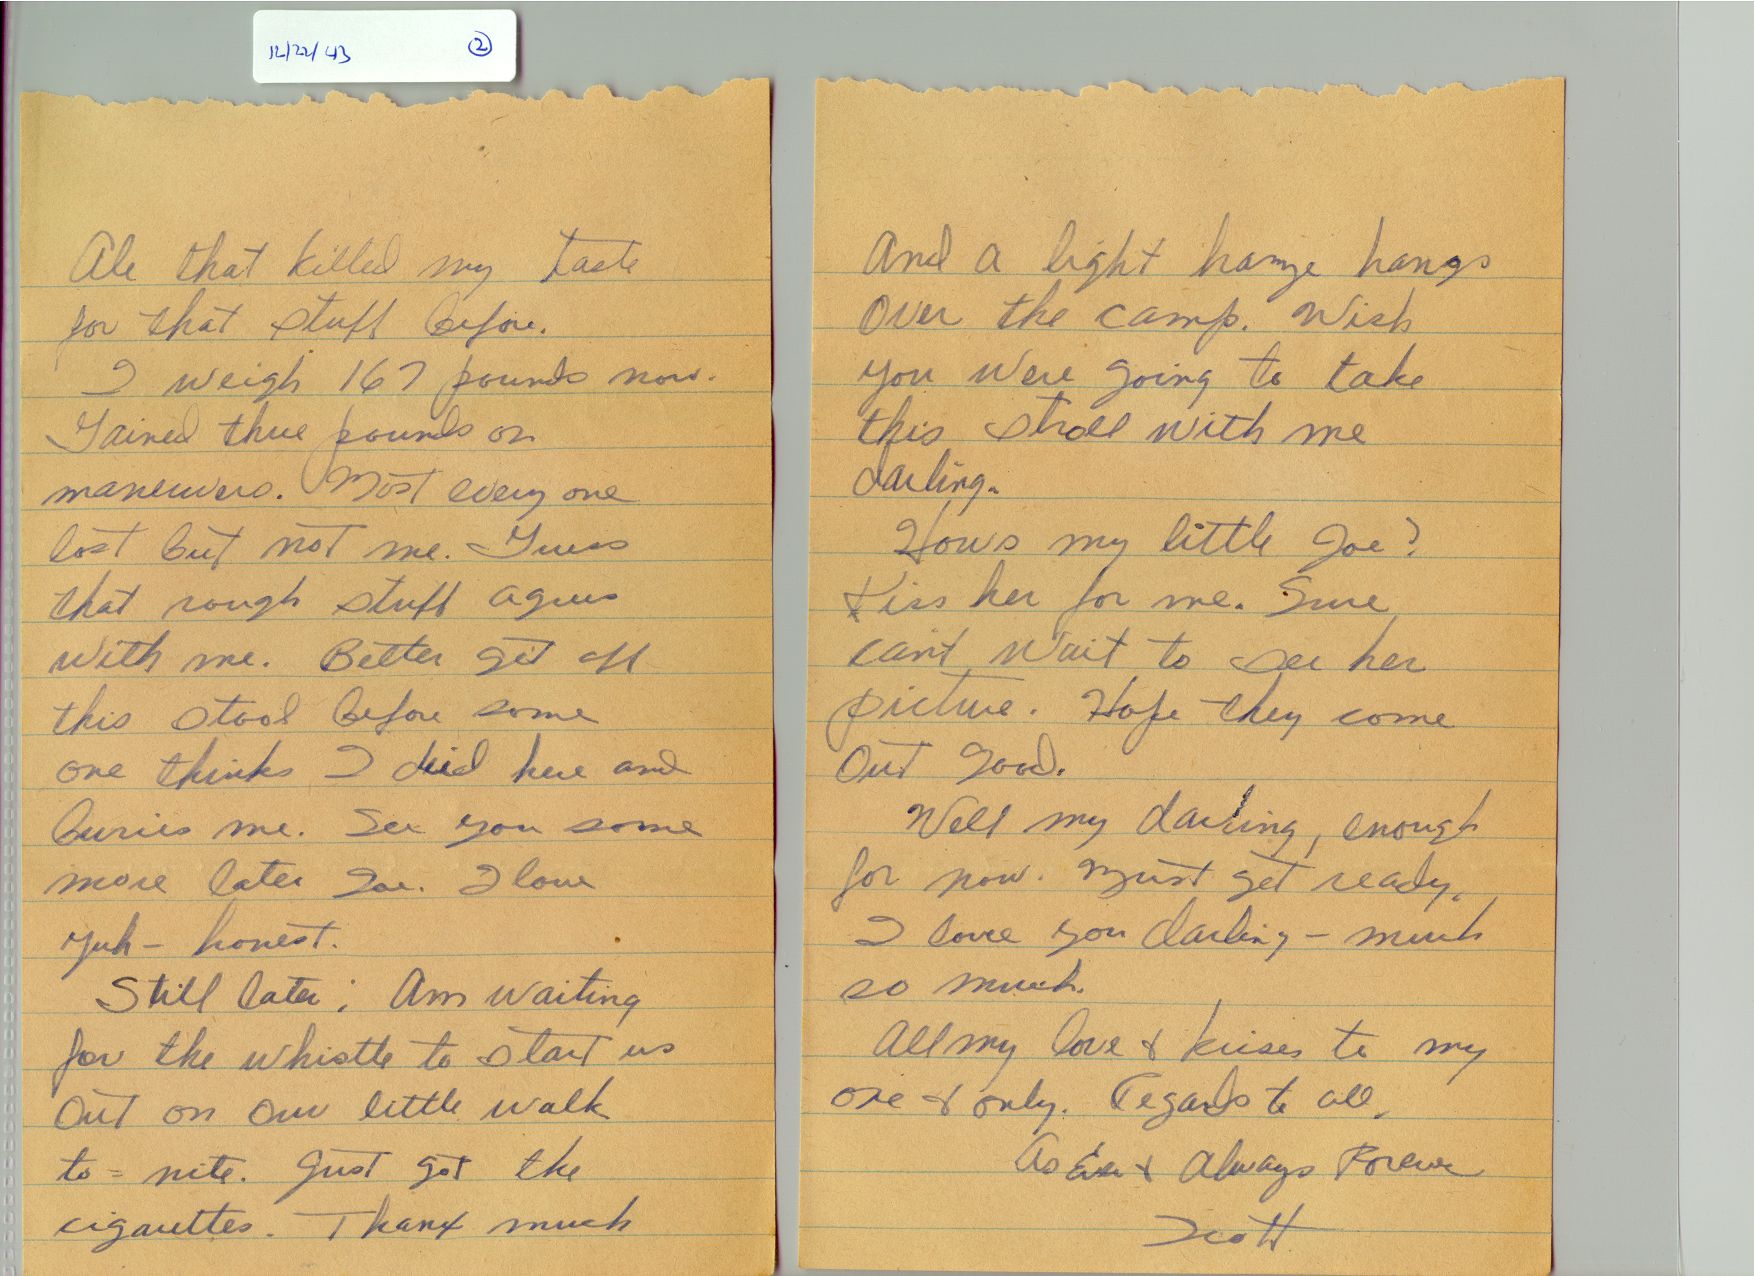 12/22/43 ②
Ale that killed my taste
for that stuff before.
I weigh 167 pounds now.
Gained three pounds on
maneuvers. Most every one
lost but not me. Guess
that rough stuff agrees
with me. Better get off
this stool before some
one thinks I died here and
buries me. See you some
more later Joe. I love
yuh - honest.
Still later; Am waiting
for the whistle to start us
out on our little walk
to-nite. Just got the
cigarettes. Thanx much
And a light hanze hangs
over the camp. Wish
you were going to take
this stroll with me
darling.
How's my little Joe?
Kiss her for me. Sure
can't wait to see her
picture. Hope they come
out good.
Well my darling, enough
for now. Must get ready.
I love you darling - much
so much.
All my love & kisses to my
one & only. Regards to all.
As Ever & Always Forever
Scott